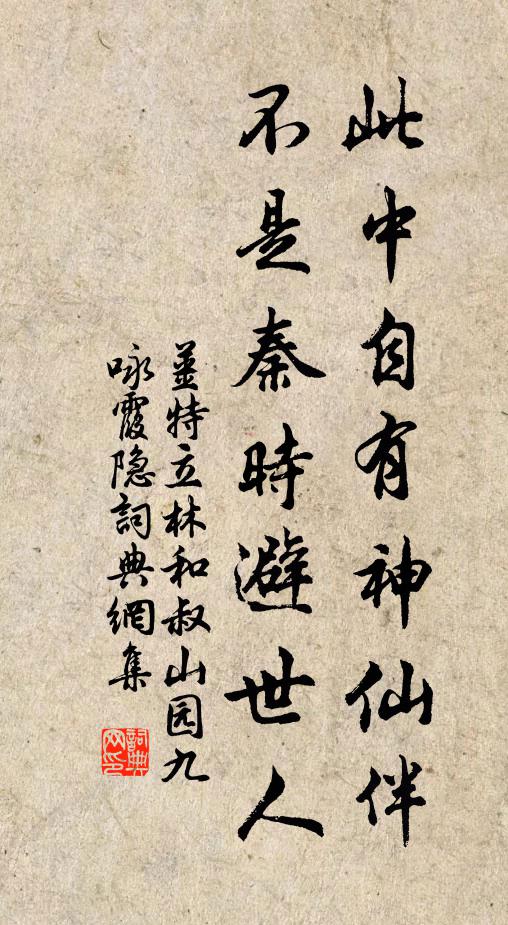 此中自有神仙伴
不是秦時避世人
姜特立林和叔山园九
咏霞隐詞典網集
詞典网印